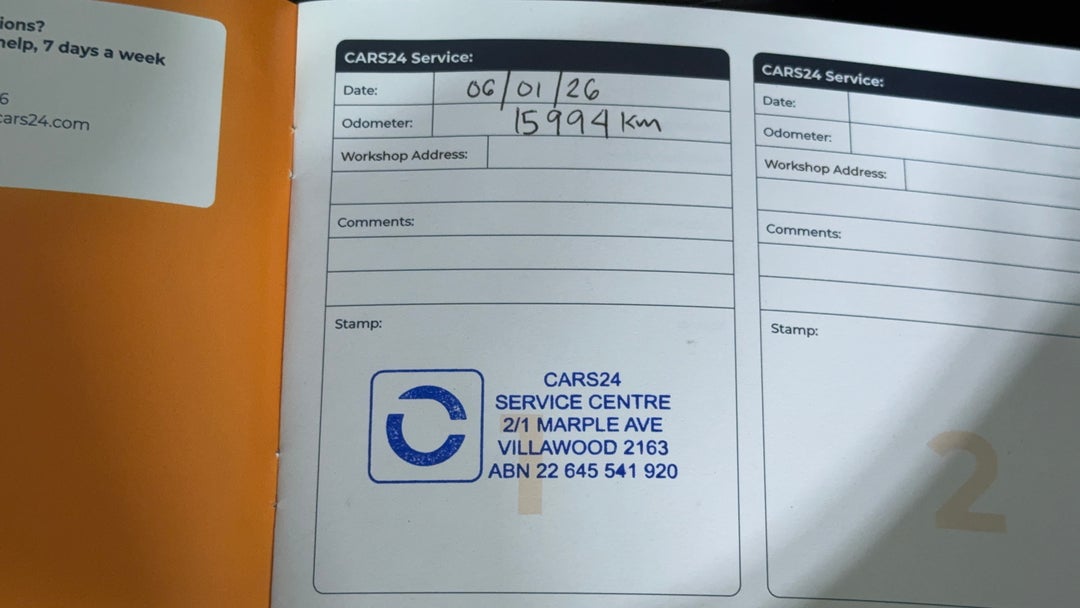 ions?
help, 7 days a week
6
cars24.com
CARS24 Service:
Date: 06/01/26
Odometer: 15994 Km
Workshop Address:
Comments:
Stamp:
CARS24
SERVICE CENTRE
2/1 MARPLE AVE
VILLAWOOD 2163
ABN 22 645 541 920
1
CARS24 Service:
Date:
Odometer:
Workshop Address:
Comments:
Stamp:
2